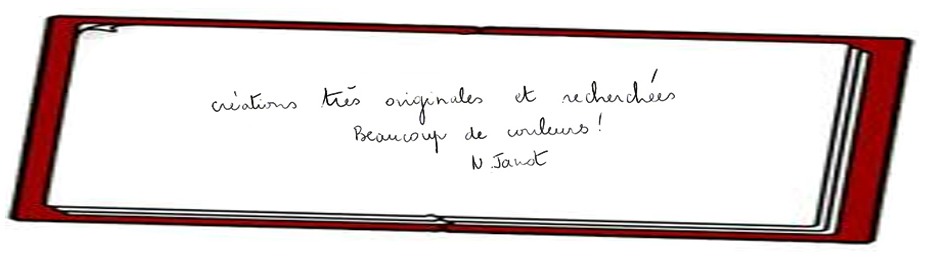 créations très originales et recherchées
Beaucoup de couleurs !
N. Janot